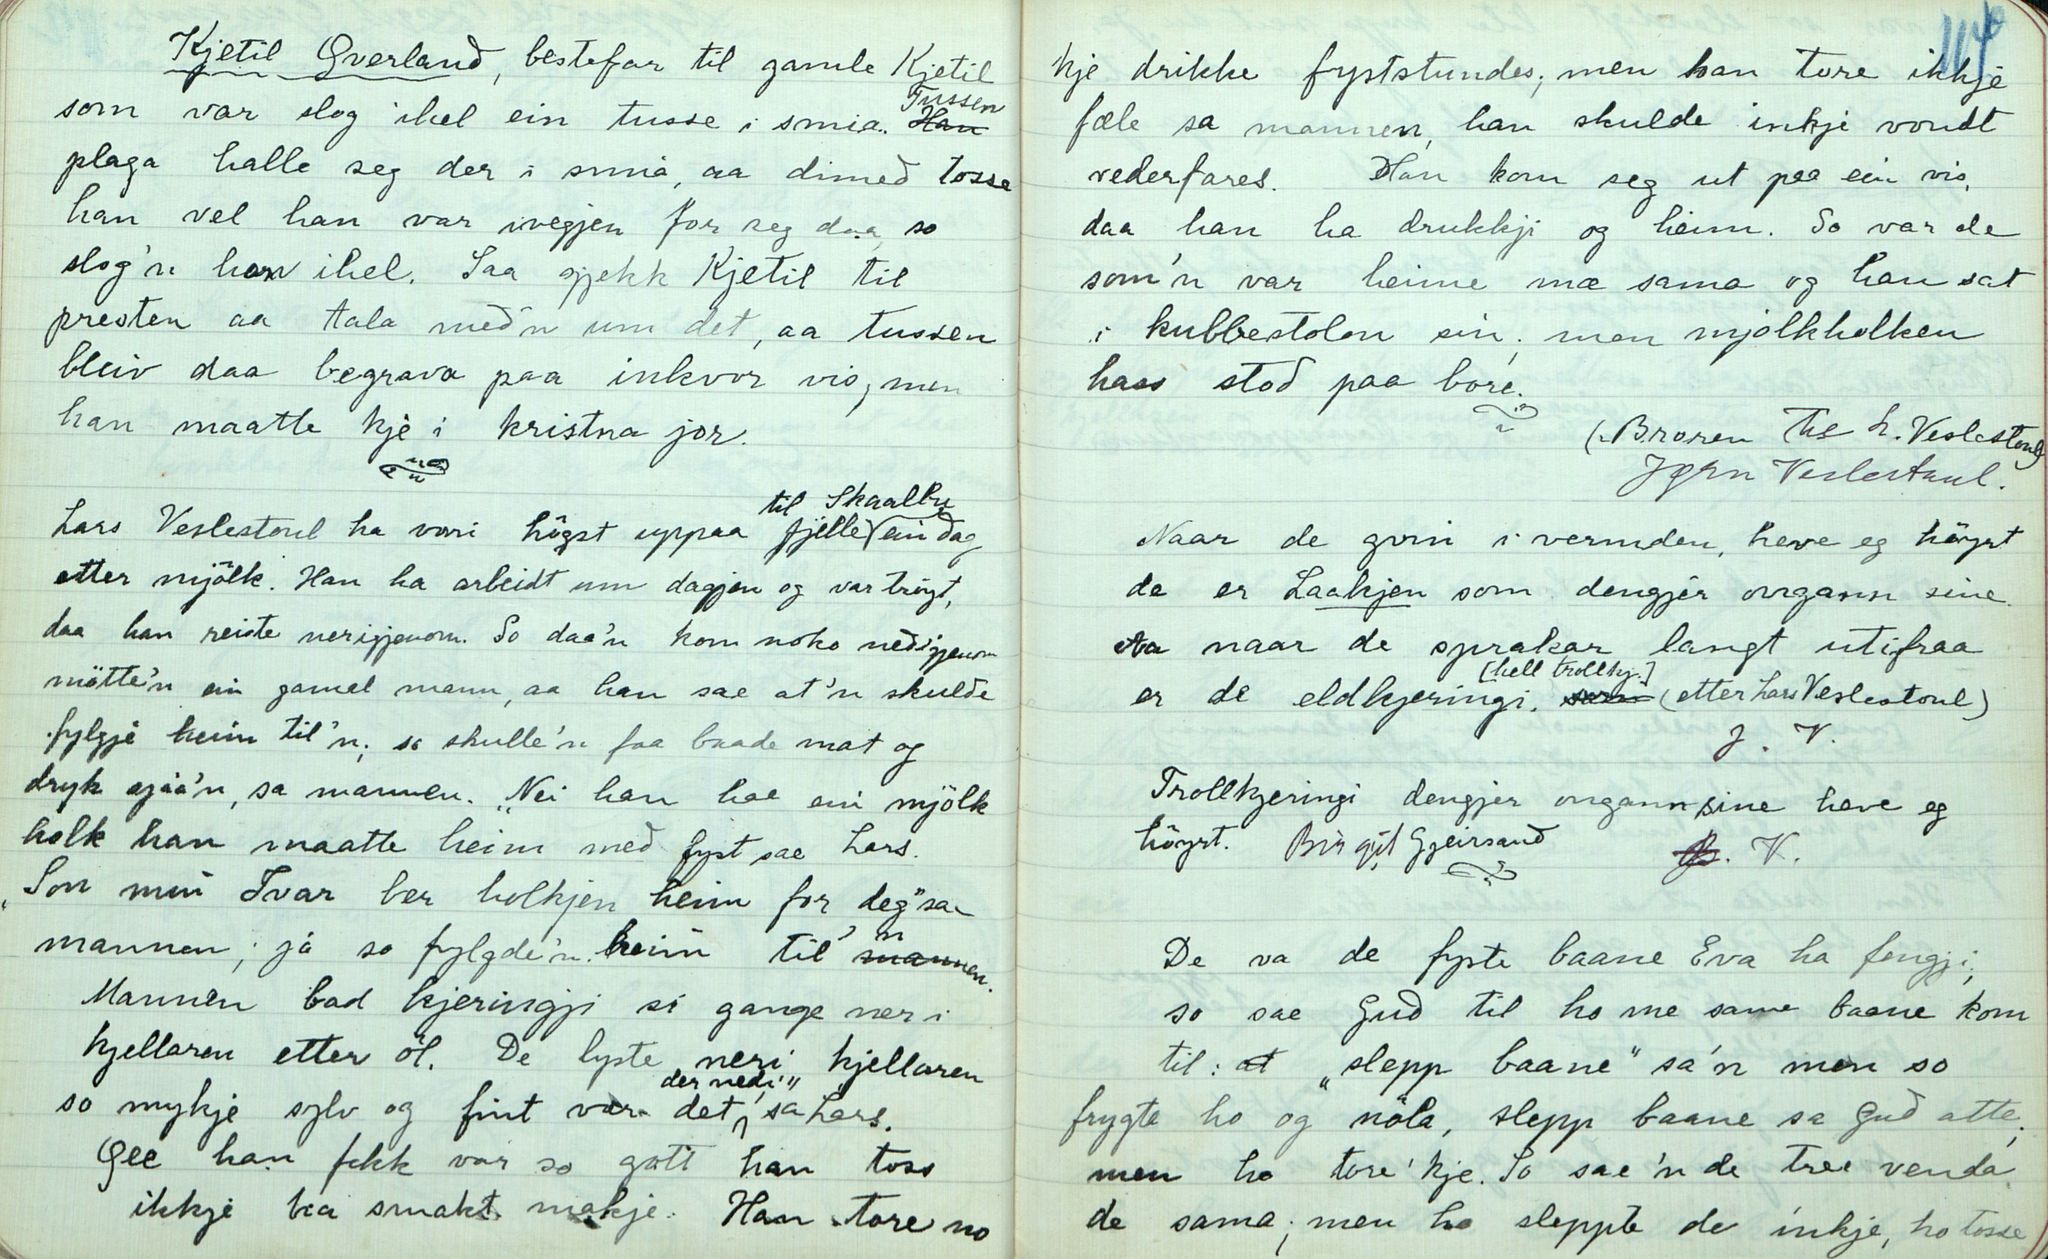 Kjetil Qverland, bestefar til gamle Kjetil
som var slog ihel ein tusse i smia. Tussen
Han
plaga halle seg der i smia, aa dimed tosse
han vel han var ivegjen for seg daa, so
slog'n han ihel. Saa gjekk Kjetil til
presten aa tala med'n um det, aa tussen
bleiv daa begrava paa inkvor vis, men
han maatte kje i kristna jor.
Lars Veslestoul ha vori högst uppaa fjelle til Skaalby ein dag
etter mjölk. Han ha arbeidt um dagjen og var tröyt,
daa han reiste nerigjenom. So daa'n kom noko nedigjenom
mötte'n ein gamal mann, aa han sae at'n skulde
fylgje heim til'n, so skulle'n faa baade mat og
dryk sjaa'n, sa mannen. "Nei han hae ein mjölk
holk han maatte heim med fyst sae Lars.
"Son min Tvar ber holkjen heim for deg" sa
mannen; ja so fylgde'n heim til 'n mannen.
Mannen bad kjeringji si gange ner i
kjellaren etter öl. De lyste neri kjellaren
so mykje sylv og fint var det der nedi", sa Lars.
Öee han fekk var so gott han toss
ikkje ha smakt makje. Han tore no
114
kje drikke fyststundes; men han tore ikkje
fæle sa mannen, han skulde inkje vondt
vederfares. Han kom seg ut paa ein vis,
daa han ha drukkji og heim. So var de
som'n var heime mæ sama og han sat
i kubbestolen sin; men mjolkholken
hass stod paa bore.
(Broren Th L. Veslestoul)
Jørn Veslestaul.
Naar de gvin i vermden, heve eg höyrt
de er Laakjen som dengjer ongann sine.
Aa naar de sprakar langt utifraa
er de eldkjeringi. [hell trollkj.] som (etter Lars Veslestoul)
J. V.
Trollkjeringi dengjer ongann sine heve eg
höyrt. Birgit Gjeirsand J. V.
De va de fyste baane Eva ha fengji,
so sae Gud til ho me same baane kom
til: at "slepp baane" sa'n men so
frygta ho og nöla, slepp baane sa Gud atte;
men ho tore'kje. So sae'n de tree venda
de sama; men ho sleppte de inkje, ho tosse